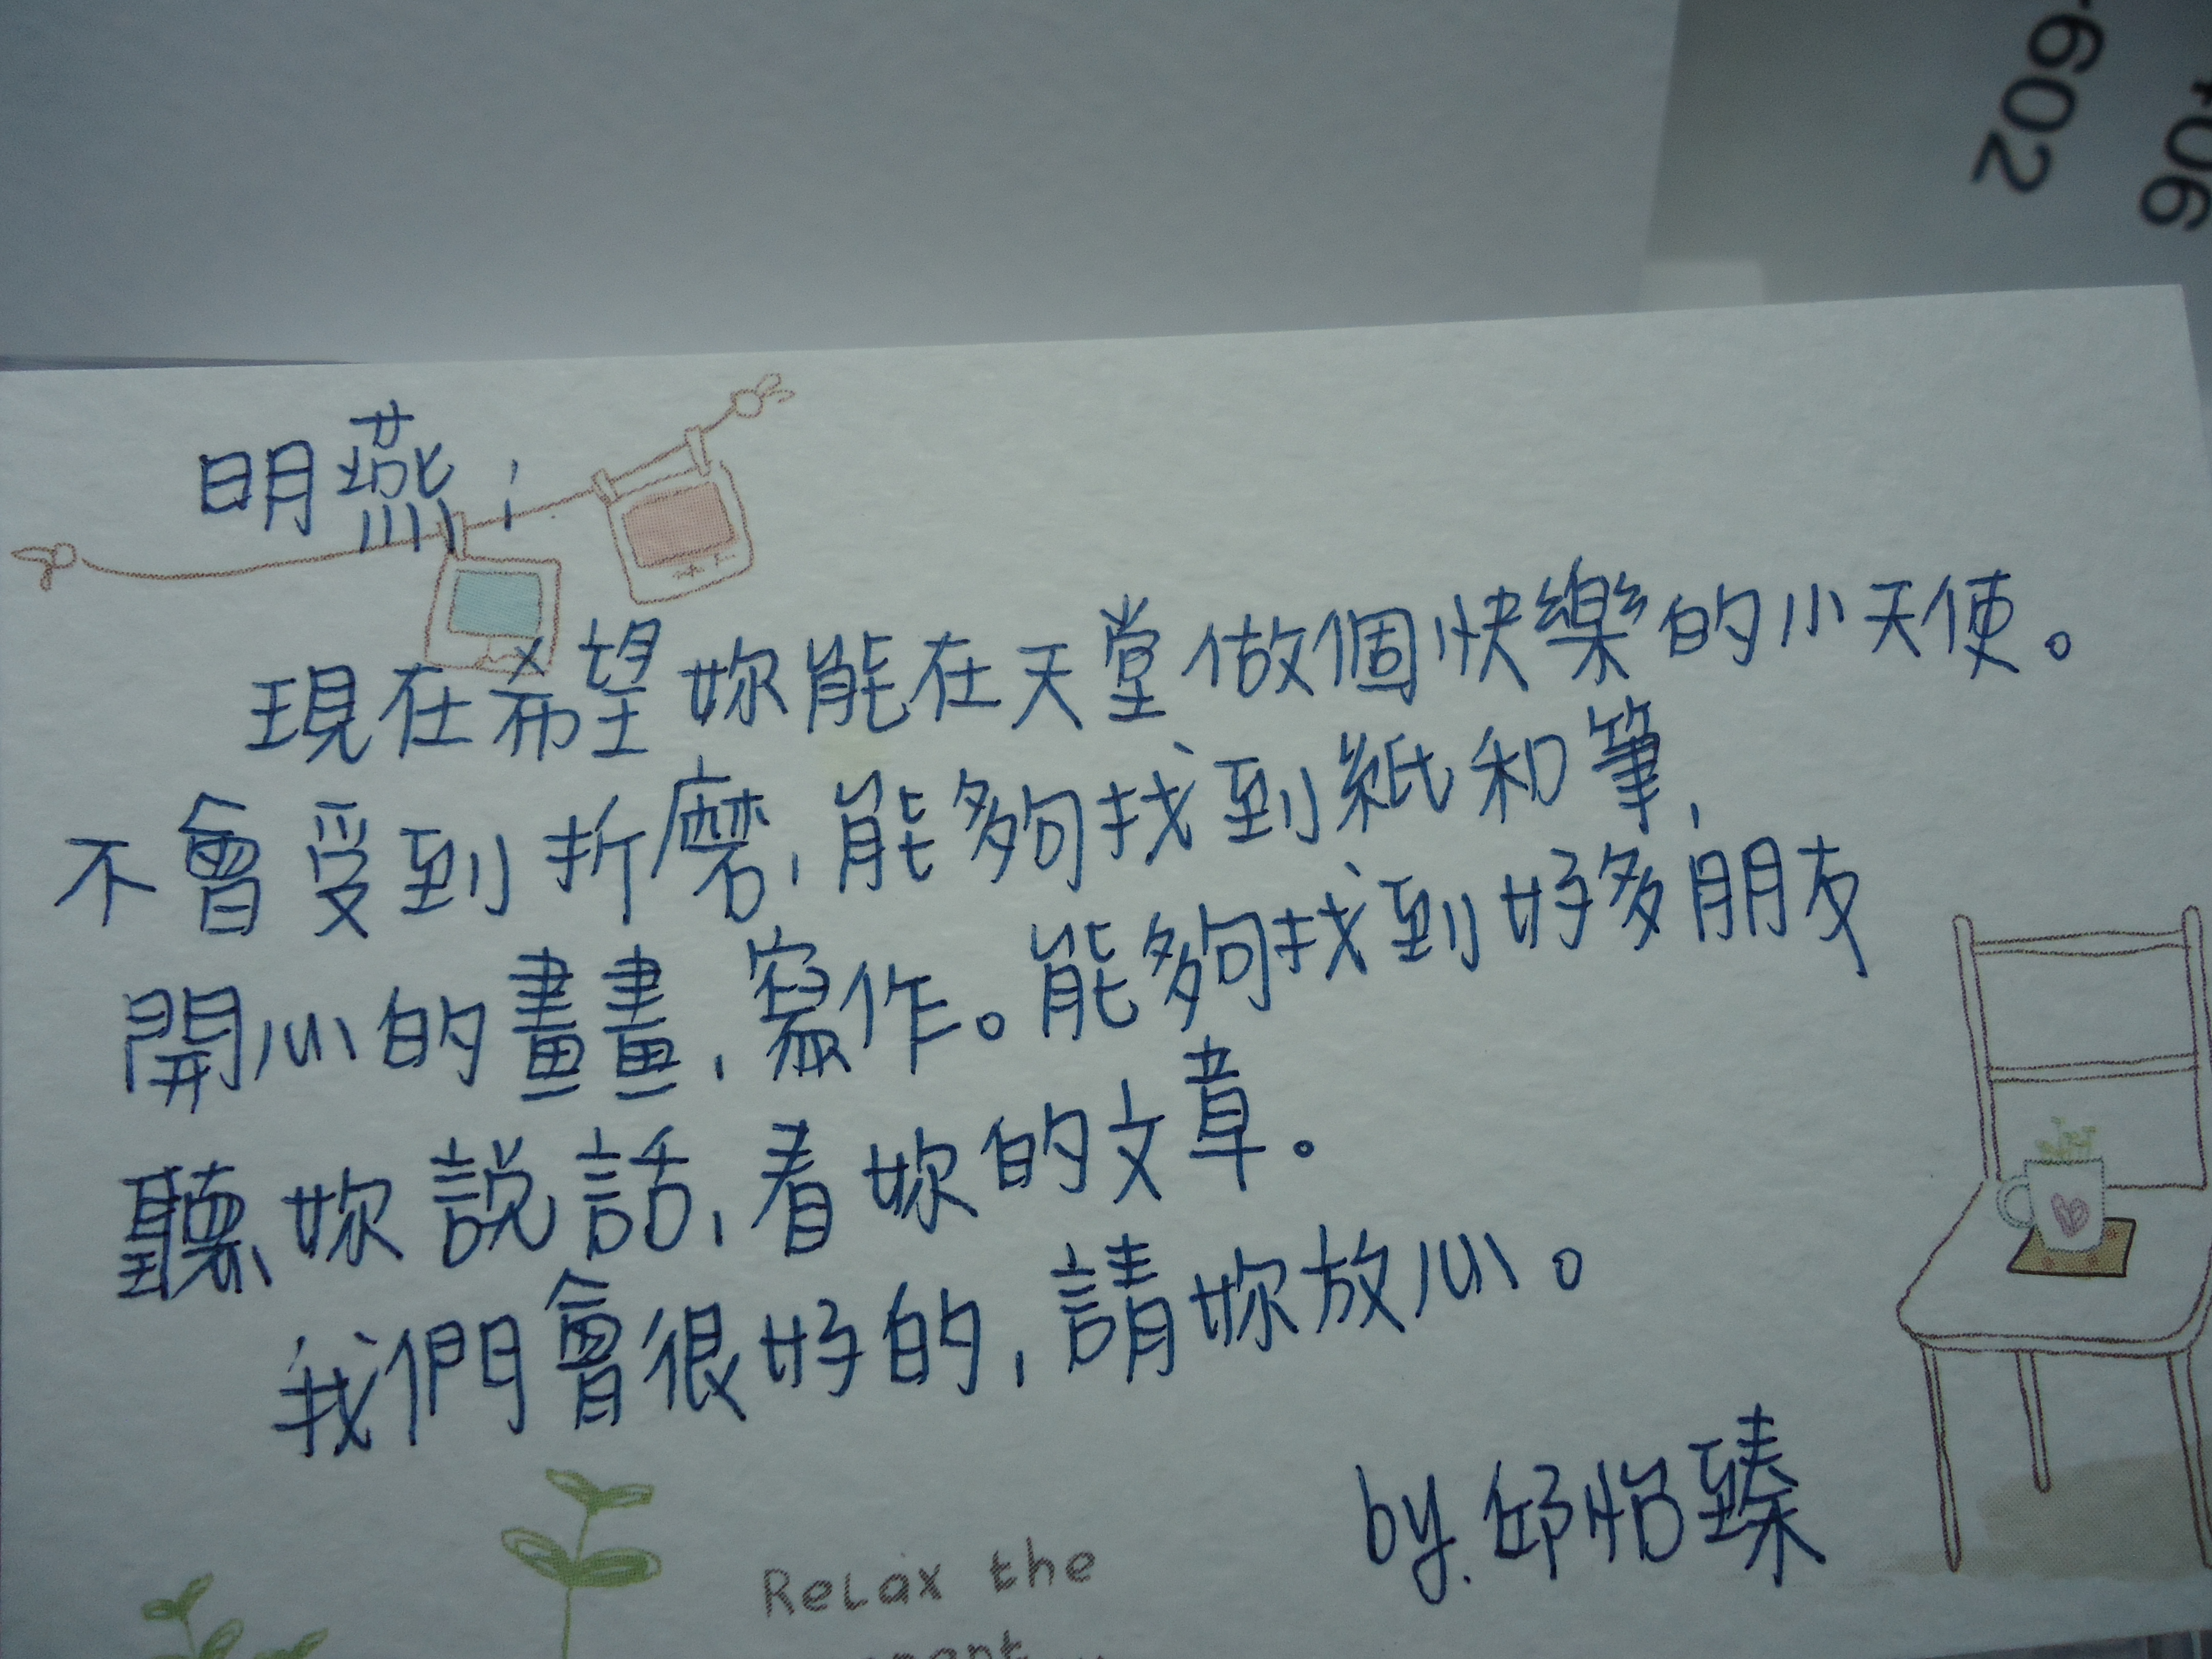 -602
406
明燕:
現在希望妳能在天堂做個快樂的小天使。
不會受到折磨,能夠找到紙和筆,
開心的畫畫,寫作。能夠找到好多朋友
聽妳說話,看妳的文章。
我們會很好的,請妳放心。
by.邱怡臻
Relax the